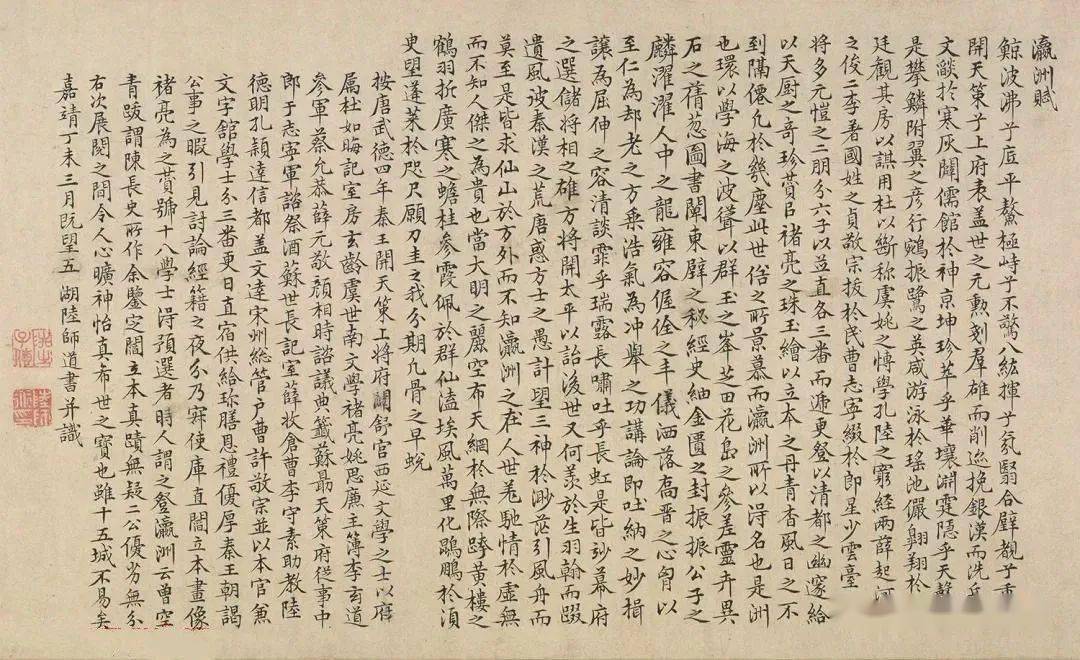 瀛洲賦
鯨波沸乎底平鰲極峙乎不驚八紘揮乎氛翳合璧覩乎重
開天策乎上府表盖世之元勲剗羣雄而削迹挽銀漢而洗兵
文燄於寒灰闢儒館於神京坤珍萃乎華壤淵霆隱乎天聲
是攀鱗附翼之彦行鵷振鷺之英咸游泳於瑤池儼翱翔於
廷觀其房以謀用杜以斷称虞姚之博學孔陸之窮經兩薛起河
之俊二李著國姓之貞敬宗拔於民曹志寧綴於郎星少雲臺
將多元愷之二朋分六子以並直各三番而遞更登以清都之幽邃給
以天厨之奇珍賛㠯褚亮之珠玉繪以立本之丹青杳風日之不
到隔僊凢於幾塵此世俗之所景慕而瀛洲所以得名也是洲
也環以學海之波聳以群玉之峯芝田花島之參差靈卉異
石之蒨葱圖書闡東壁之秘經史紬金匱之封振振公子之
麟濯濯人中之龍雍容偓佺之丰儀洒落高晋之心匈以
至仁為却老之方乗浩氣為冲舉之功講論即吐納之妙揖
讓為屈伸之容清談霏乎瑞露長嘯吐乎長虹是皆妙幕府
之選儲將相之雄方將開太平以詒後世又何羨於生羽翰而啜
遺風彼秦漢之荒唐惑方士之愚計望三神於渺茫引風舟而
莫至是皆求仙山於方外而不知瀛洲之在人世羌馳情於虛無
而不知人傑之為貴也當大明之麗空布天網於無際跨黄樓之
鶴羽折廣寒之蟾桂參霞佩於群仙溘埃風萬里化鵾鵬於湏
臾望蓬莱於咫尺願刀圭之我分期凢骨之早蛻
按唐武德四年秦王開天策上將府闢舒宫西延文學之士以府
属杜如晦記室房玄齡虞世南文學褚亮姚思廉主簿李玄道
參軍蔡允恭薛元敬顔相時諮議典籤蘇勗天策府從事中
郎于志寧軍諮祭酒蘇世長記室薛收倉曹李守素助教陸
德明孔頴達信都盖文達宋州総管戸曹許敬宗並以本官兼
文字舘學士分三番更日直宿供給珎膳恩禮優厚秦王朝謁
公事之暇引見討論經籍之夜分乃寐使庫直閻立本畫像
褚亮為之賛號十八學士得預選者時人謂之登瀛洲云曽空
青跋謂陳長史所作余鑒定閻立本真蹟無疑二公優劣無分
右次展閱之間令人心曠神怡真希世之寶也雖十五城不易矣
嘉靖丁未三月既望五湖陸師道書并識